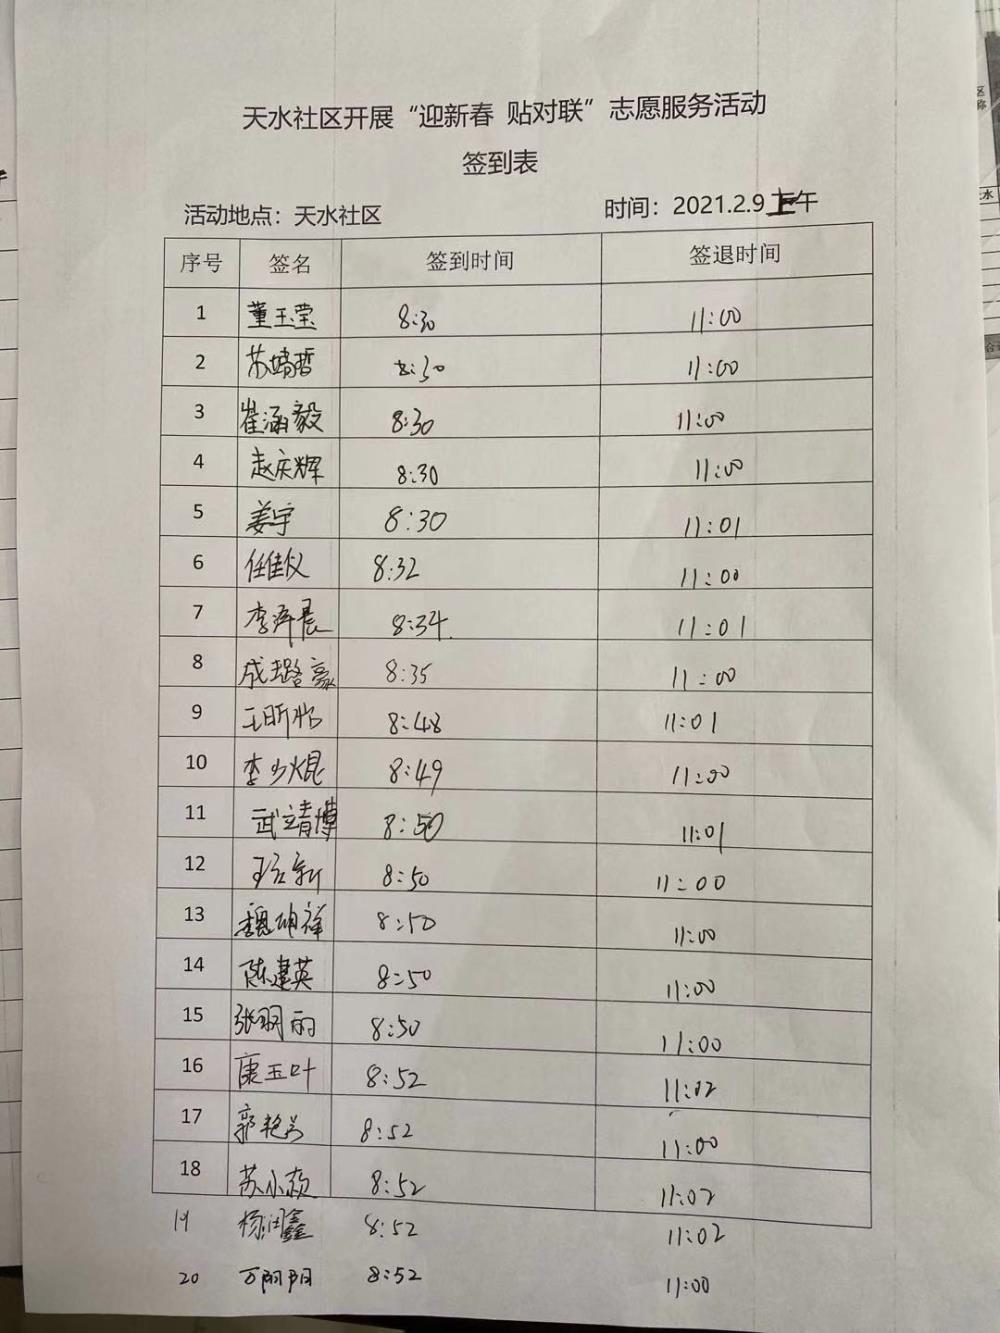 天水社区开展“迎新春 贴对联”志愿服务活动
签到表
活动地点：天水社区 时间：2021.2.9上午
序号 签名 签到时间 签退时间
1 董玉莹 8:30 11:00
2 苏靖哲 8:30 11:00
3 崔涵毅 8:30 11:00
4 赵庆辉 8:30 11:00
5 姜宇 8:30 11:01
6 任佳仪 8:32 11:00
7 李泽晨 8:34 11:01
8 成璐豪 8:35 11:00
9 王昕怡 8:48 11:01
10 李少焜 8:49 11:00
11 武靖博 8:50 11:01
12 8:50 11:00
13 魏坤祥 8:50 11:00
14 陈建英 8:50 11:00
15 张丽 8:50 11:00
16 康玉叶 8:52 11:02
17 郭艳芳 8:52 11:00
18 苏小颖 8:52 11:02
19 杨润鑫 8:52 11:02
20 万阳阳 8:52 11:00